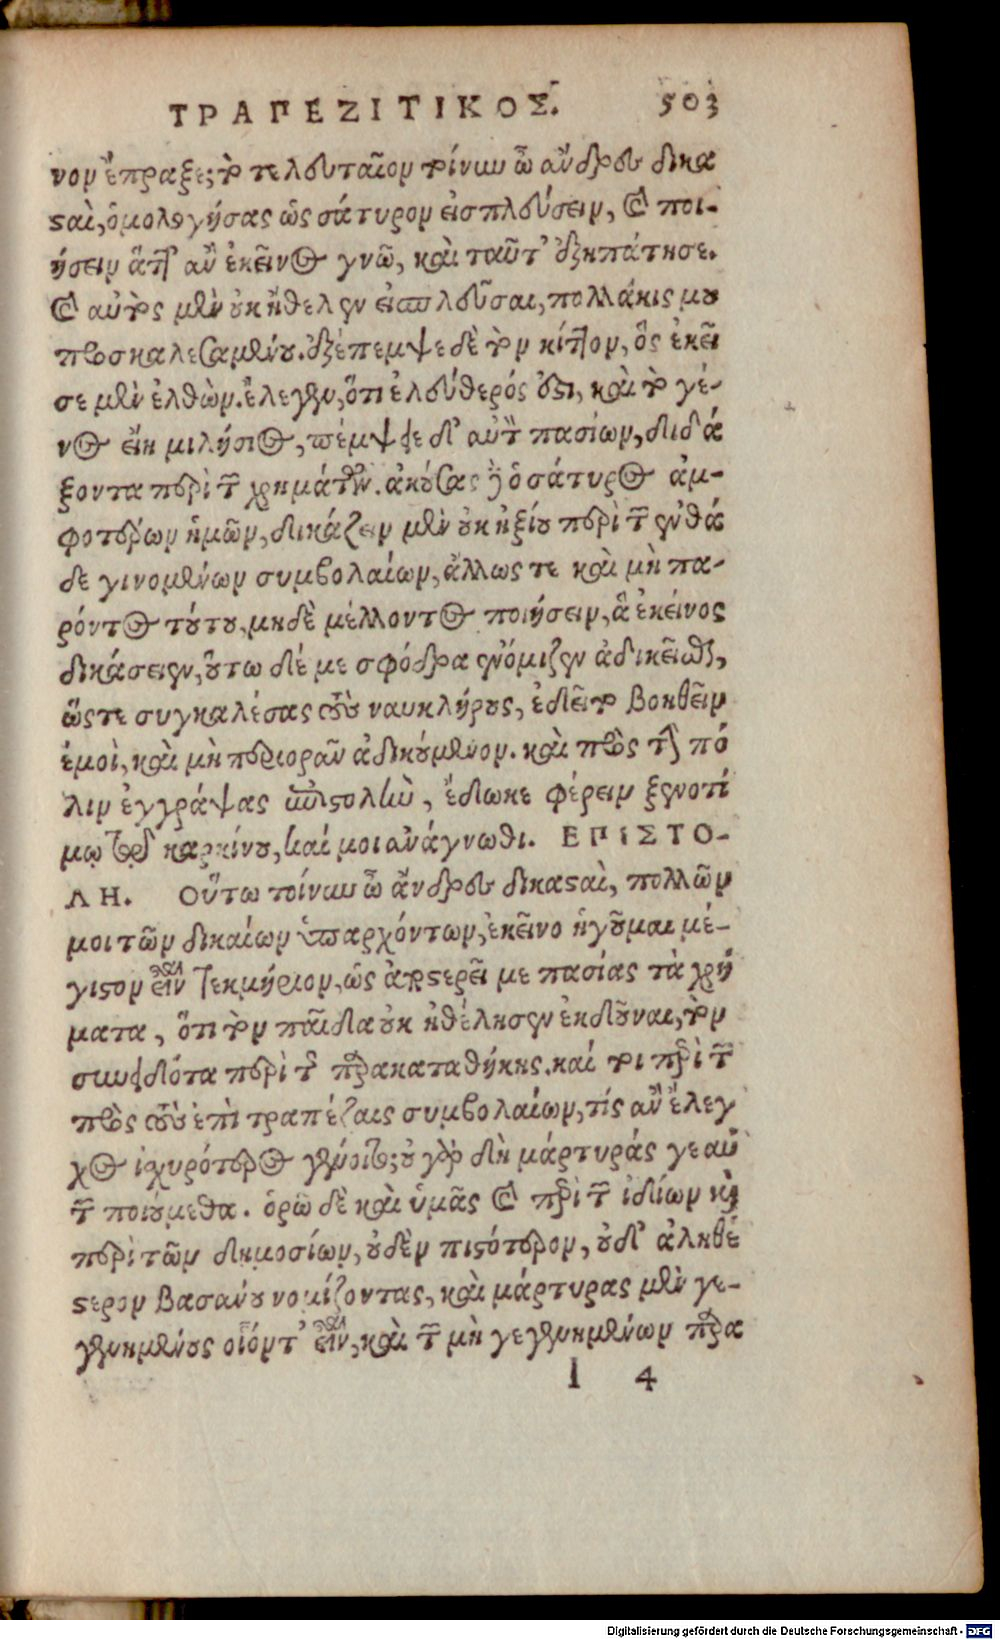 ΤΡΑΠΕΖΙΤΙΚΟΣ. 503
νον ἔπραξε; τὸ τελευταῖον τοίνυν ὦ ἄνδρες δικα
ςαὶ, ὁμολογήσας ὡς σάτυρον εἰσπλεύσειν, καὶ ποι-
ήσειν ἅττ' ἂν ἐκεῖνος γνῶ, καὶ ταῦτ' ἐξηπάτησε.
καὶ αὐτὸς μὲν οὐκ ἤθελεν εἰσπλεῦσαι, πολλάκις μου
προσκαλεσαμένου. ἐξέπεμψε δὲ τὸν κίττον, ὃς ἐκεῖ
σε μὲν ἐλθὼν. ἔλεγεν, ὅτι ἐλεύθερός ἐςι, καὶ τὸ γέ-
νος εἴη μιλήσιος, πέμψειε δ' αὐτὸν πασίων, διδά
ξοντα περὶ τῶν χρημάτων. ἀκούσας δὲ ὁ σάτυρος ἀμ-
φοτέρων ἡμῶν, δικάζειν μὲν οὐκ ἠξίου περὶ τῶν ἐνθά
δε γινομένων συμβολαίων, ἄλλως τε καὶ μὴ πα-
ρόντος τούτου, μηδὲ μέλλοντος ποιήσειν, ἃ ἐκεῖνος
δικάσειεν, οὕτω δέ με σφόδρα ἐνόμιζεν ἀδικεῖσθαι,
ὥςτε συγκαλέσας τοὺς ναυκλήρους, ἐδεῖτο βοηθεῖν
ἐμοὶ, καὶ μὴ περιορᾶν ἀδικούμενον. καὶ πρὸς τὴν πό
λιν ἐγγράψας ἐπιςολὴν, ἔδωκε φέρειν ξενοτί
μῳ τῷ καρκίνου, καί μοι ἀνάγνωθι. ΕΠΙΣΤΟ-
ΛΗ. Οὕτω τοίνυν ὦ ἄνδρες δικαςαὶ, πολλῶν
μοι τῶν δικαίων ὑπαρχόντων, ἐκεῖνο ἡγοῦμαι μέ-
γιςον εἶναι τεκμήριον, ὡς ἀποςερεῖ με πασίας τὰ χρή
ματα, ὅτι τὸν παῖδα οὐκ ἠθέλησεν ἐκδοῦναι, τὸν
συνειδότα περὶ τῆς παρακαταθήκης. καί τοι περὶ τῶν
πρὸς τοὺς ἐπὶ τραπέζαις συμβολαίων, τίς ἂν ἔλεγ
χος ἰχυρότερος γένοιτο; οὐ γὰρ δὴ μάρτυράς γε αὐ
τῶν ποιούμεθα. ὁρῶ δὲ καὶ ὑμᾶς καὶ περὶ τῶν ἰδίων καὶ
περὶ τῶν δημοσίων, οὐδὲν πιςότερον, οὐδ' ἀληθέ
ςερον βασάνου νομίζοντας, καὶ μάρτυρας μὲν γε-
γενημένους οἷόντ' εἶναι, καὶ τῶν μὴ γεγενημένων παρα
l 4
Digitalisierung gefördert durch die Deutsche Forschungsgemeinschaft - DFG